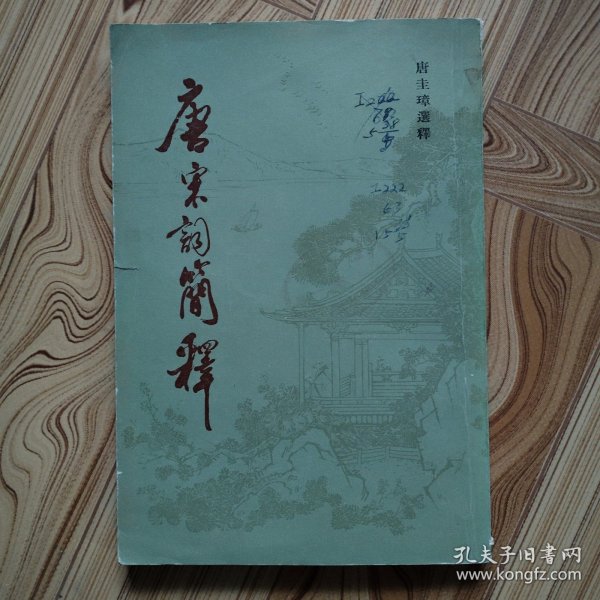 唐宋詞簡釋
唐圭璋選釋
I222
63
孔夫子旧书网
www.kongfz.com